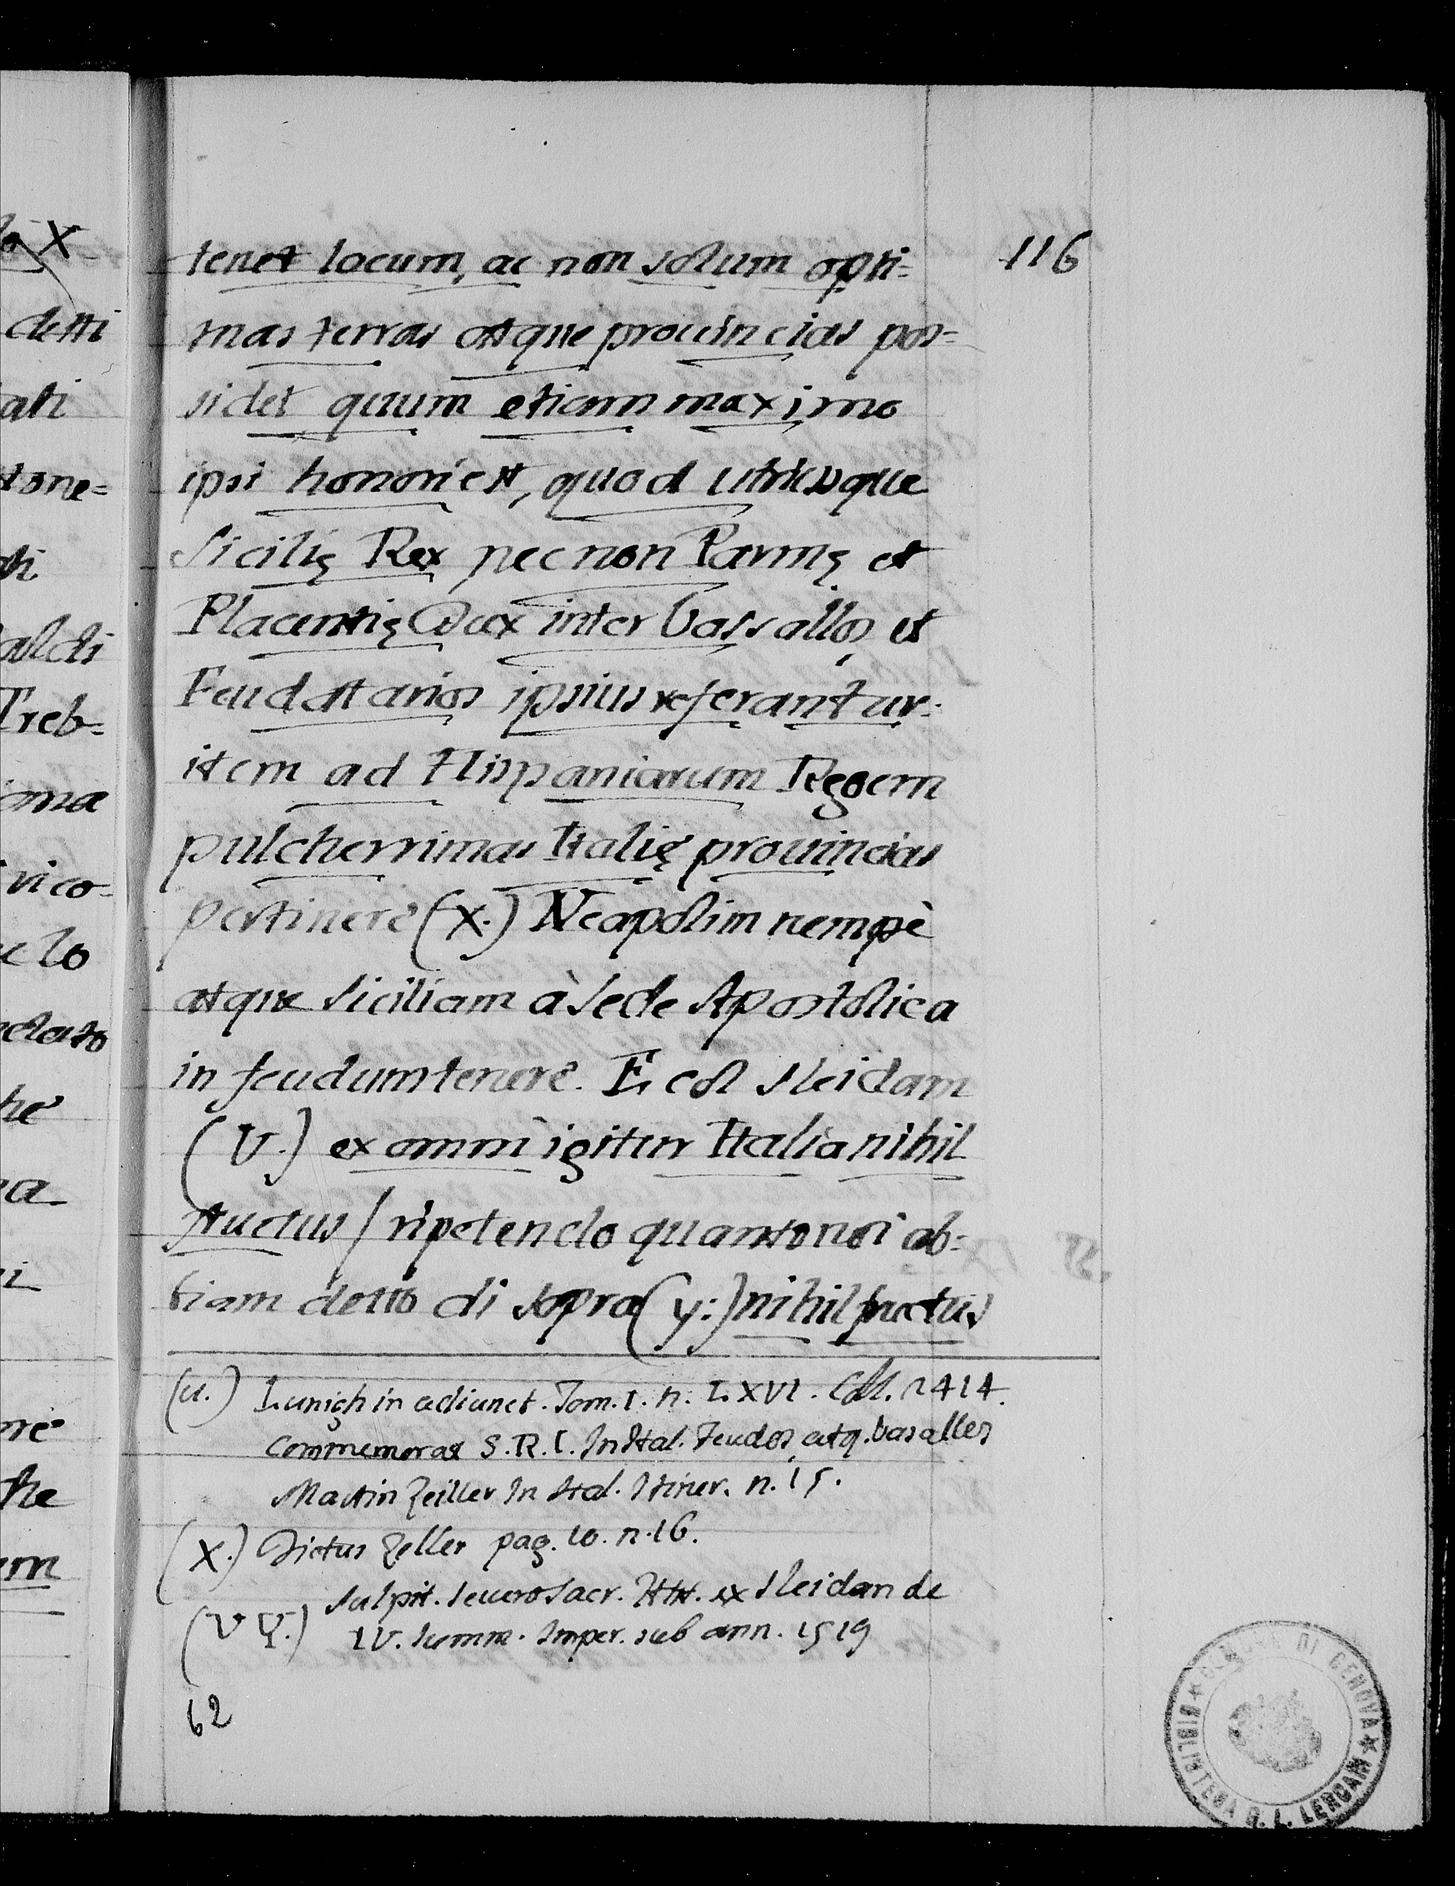 116
tenet locum, ac non solum opti=
mas terras atque prouincias pos=
sidet quum etiam maximo
ipsi honori est, quod utriusque
Sicilię Rex necnon Parmę et
Placentię Dux inter Vassallos et
Feudatarios ipsius referantur:
item ad Hispaniarum Regem
pulcherrimas Italię prouincias
pertinere (X.) Neapolim nempè
atque Siciliam à Sede Apostolica
in feudum tenere. E col Sleidam
(V.) ex omni igitur Italia nihil
fructus / ripetendo quanto noi ab=
biam detto di sopra (y:) nihil fructus
(u.) Lunigh in adiunct. Tom. I. n. LXVI. Coll. 2414.
Commemorat S. R. I. In Ital. Feudos atq. vasallos
Martin Zeiller In Ital. Itiner. n. 15.
(X.) Dictus Zeller pag. 10. n. 16.
Sulpit. Seuero Sacr. Hist. ex Sleidan de
(V Y.) IV. Summ. Imper. sub ann. 1519
62
BIBLIOTECA G. L. LERCARI
DI GENOVA
la X
detti
ati
tone=
di
aldi
Treb=
ima
rico=
e lo
clato
he
ra
ri
ore
che
em